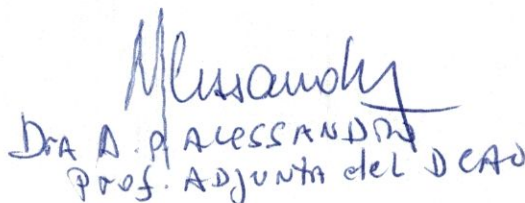 Alessandro
Dra A. P. ALESSANDRO
Prof. ADJUNTA del DCAO